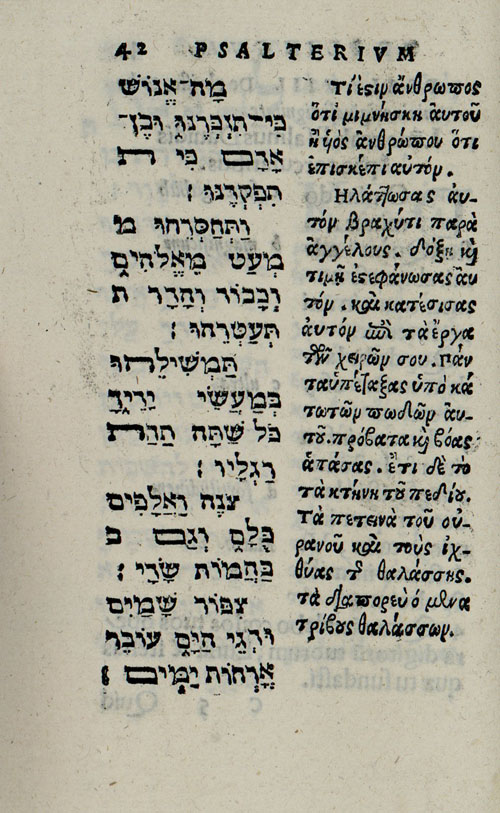 42 PSALTERIVM
מָה־אֱנוֹשׁ
כִּי־תִזְכְּרֶנּוּ וּבֶן־
אָדָם כִּי ת
תִפְקְדֶנּוּ׃
וַתְּחַסְּרֵהוּ מ
מְעַט מֵאֱלֹהִים
וְכָבוֹד וְהָדָר ת
תְּעַטְּרֵהוּ׃
תַּמְשִׁילֵהוּ
בְּמַעֲשֵׂי יָדֶיךָ
כֹּל שַׁתָּה תַחַת
רַגְלָיו׃
צֹנֶה וַאֲלָפִים
כֻּלָּם וְגַם ב
בַּהֲמוֹת שָׂדָי׃
צִפּוֹר שָׁמַיִם
וּדְגֵי הַיָּם עוֹבֵר
אָרְחוֹת יַמִּים׃
Τί ἐςιν ἄνθρωπος
ὅτι μιμνήσκη αυτοῦ
ἢ ἡὸς ἀνθρώπου ὅτι
ἐπισκέπῃ αὐτόμ.
Ηλάττωσας ἀυ-
τόμ βραχύτι παρὰ
ἀγγέλους. δόξῃ καὶ
τιμῇ ἐςεφάνωσας ἀυ
τόμ. καὶ κατέσισας
ἀυτόμ ἐπὶ τὰ ἔργα
τῶν χειρῶμ σου. πάν
τα ὑπέταξας ὑπὸ κά
τω τῶμ ποδῶμ αυ-
τοῦ. πρόβατα καὶ βόας
ἁπάσας. ἔτι δὲ τὸ
τὰ κτήνη τοῦ πεδίου.
Τὰ πετεινὰ τοῦ οὐ-
ρανοῦ καὶ τοὺς ἰχ-
θύας τῆς θαλάσσης.
τὰ διαπορευόμενα
τρίβους θαλάσσωμ.